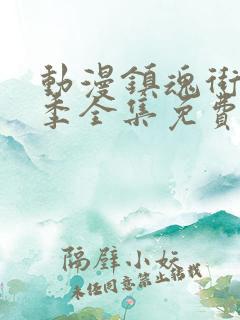 動漫鎮魂街
季全集免費
隔壁小妖
未经同意禁止转载